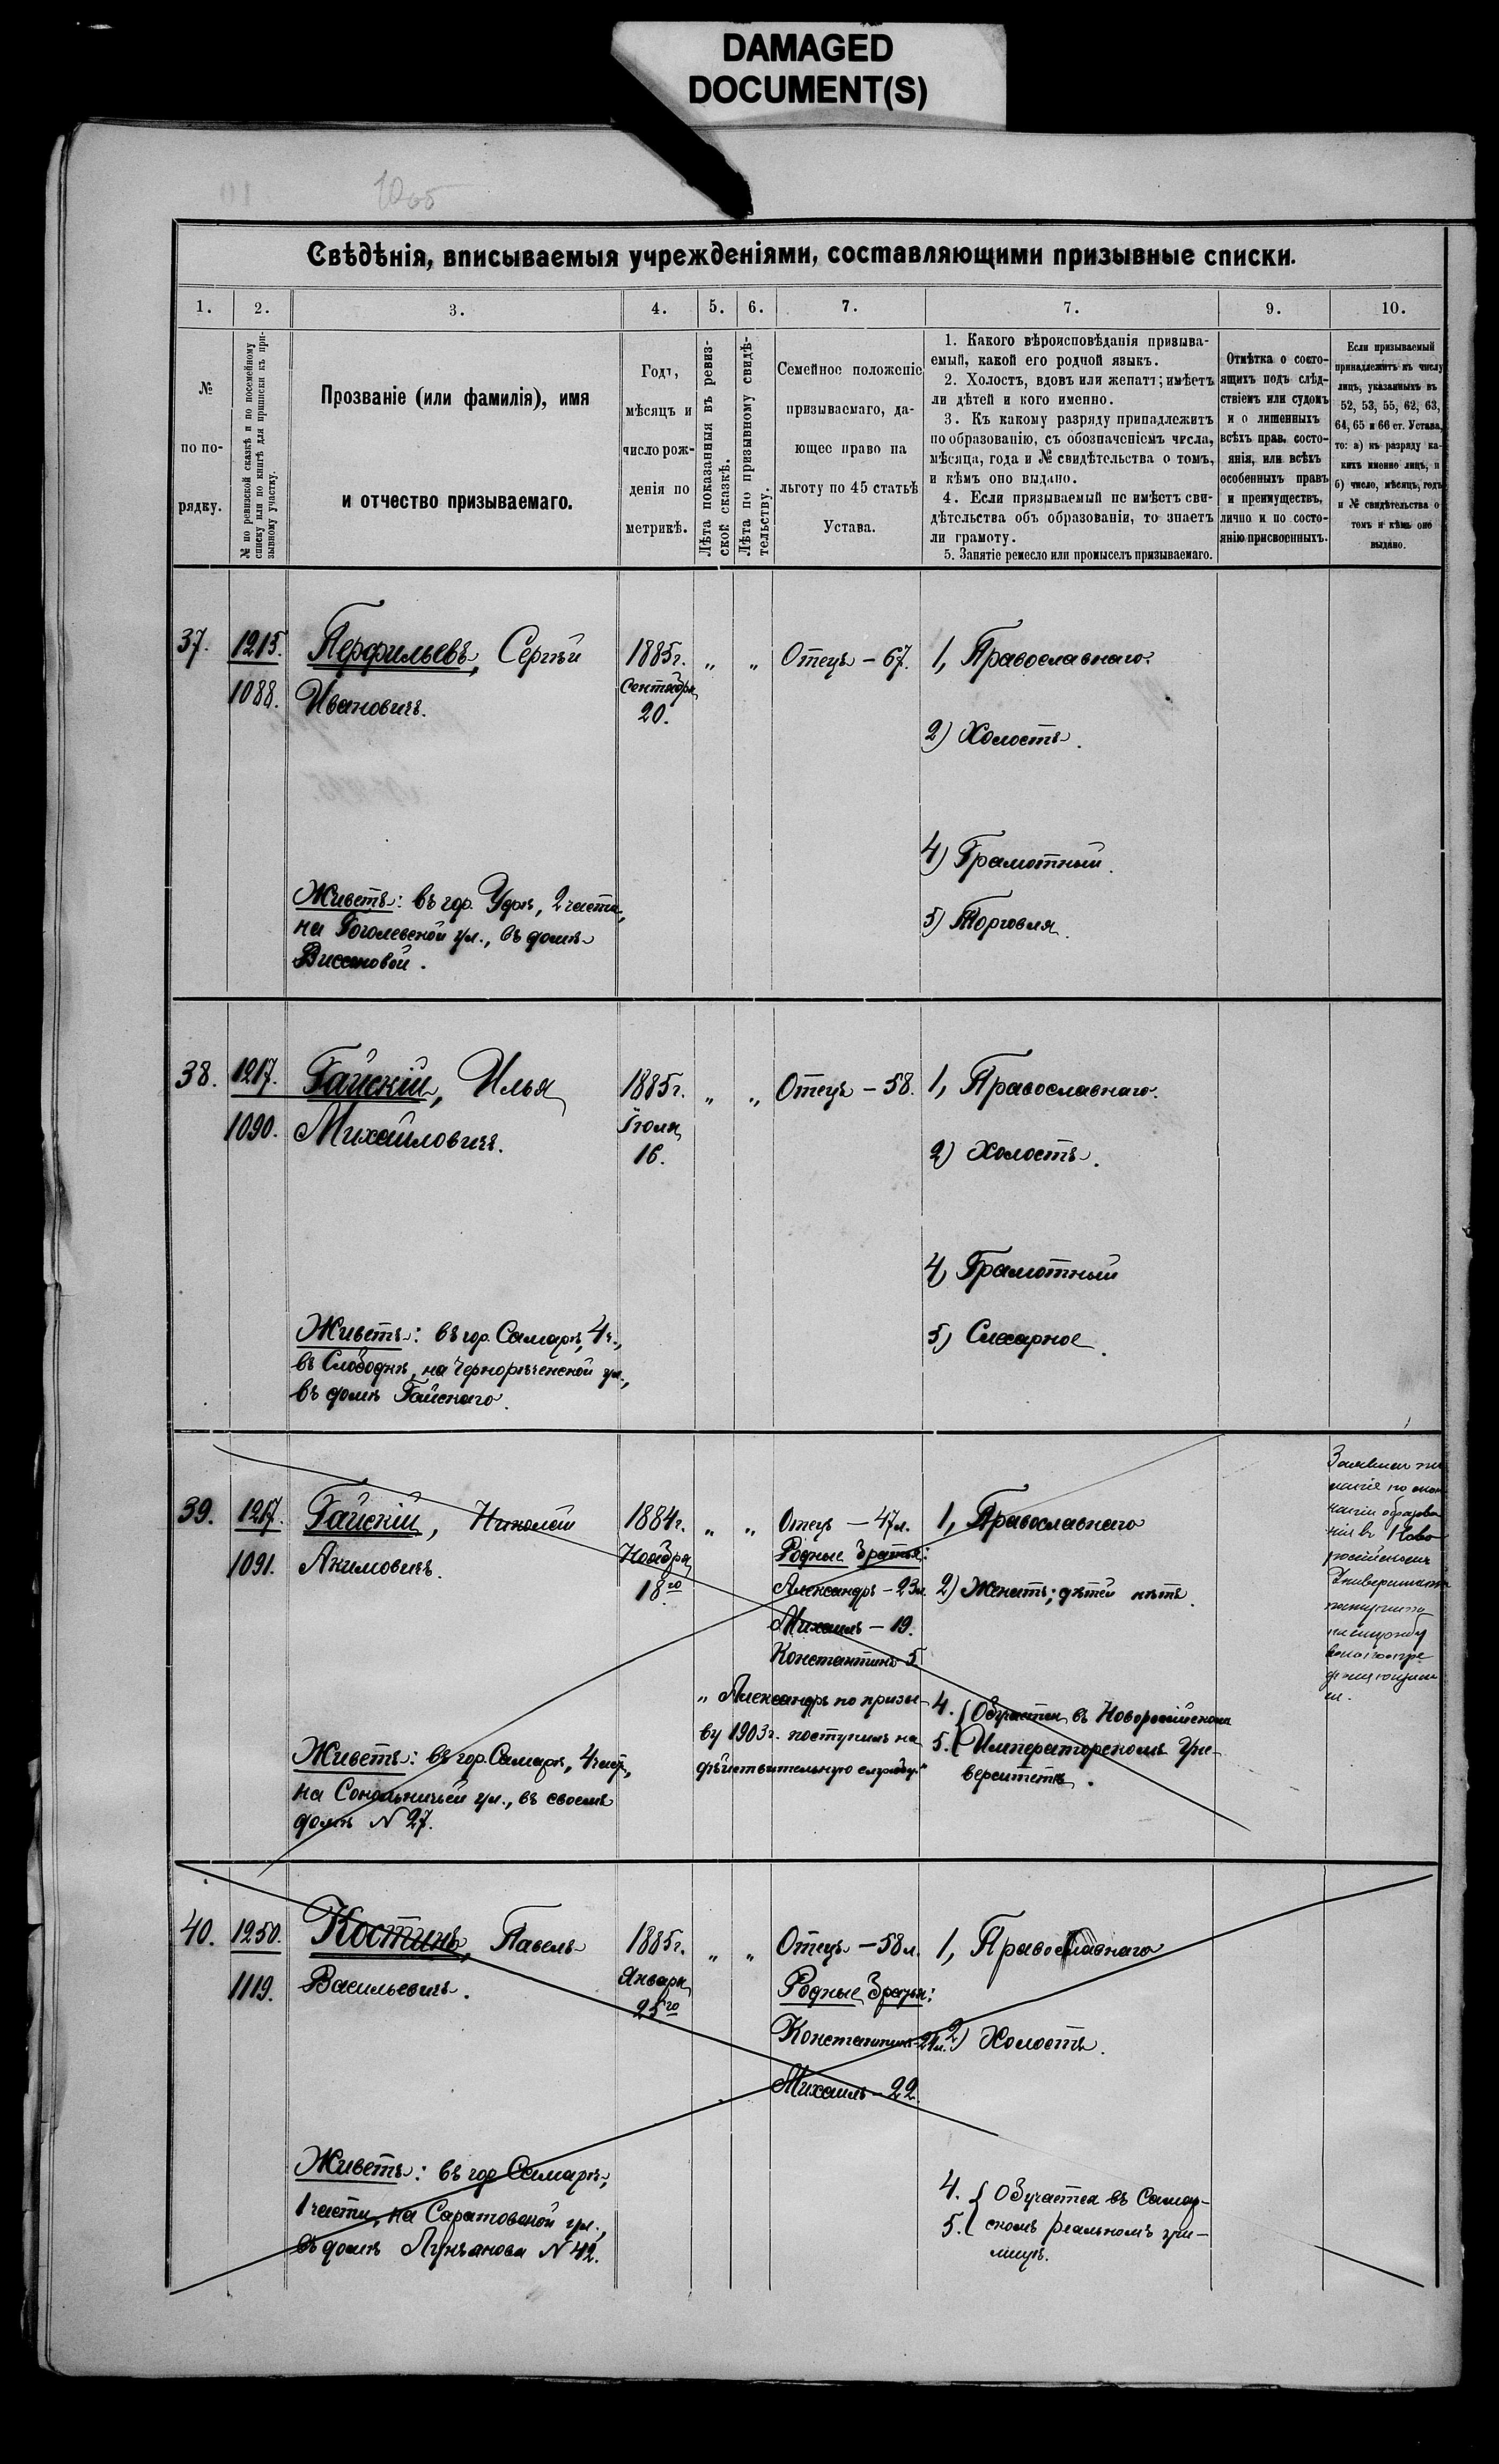 DAMAGED
DOCUMENT(S)
Свѣдѣнія, вписываемыя учрежденіями, составляющими призывные списки.
1. 2. 3. 4. 5. 6. 7. 7. 9. 10.
№
по по-
рядку.
№ по ревизской сказкѣ и по посемейному
списку или по книгѣ для приписки къ при-
зывному участку.
Прозваніе (или фамилія), имя
и отчество призываемаго.
Годъ,
мѣсяцъ и
число рож-
денія по
метрикѣ.
Лѣта показанныя въ ревиз-
ской сказкѣ.
Лѣта по призывному свидѣ-
тельству.
Семейное положеніе
призываемаго, да-
ющее право на
льготу по 45 статьѣ
Устава.
1. Какого вѣроисповѣданія призыва-
емый, какой его родной языкъ.
2. Холостъ, вдовъ или женатъ; имѣетъ
ли дѣтей и кого именно.
3. Къ какому разряду принадлежитъ
по образованію, съ обозначеніемъ числа,
мѣсяца, года и № свидѣтельства о томъ,
и кѣмъ оно выдано.
4. Если призываемый не имѣетъ сви-
дѣтельства объ образованіи, то знаетъ
ли грамоту.
5. Занятіе ремесло или промыселъ призываемаго.
Отмѣтка о состо-
ящихъ подъ слѣд-
ствіемъ или судомъ
и о лишенныхъ
всѣхъ прав. состо-
янія, или всѣхъ
особенныхъ правъ
и преимуществъ,
лично и по состо-
янію присвоенныхъ.
Если призываемый
принадлежитъ къ числу
лицъ, указанныхъ въ
52, 53, 55, 62, 63,
64, 65 и 66 ст. Устава,
то: а) къ разряду ка-
кихъ именно лицъ, и
б) число, мѣсяцъ, годъ
и № свидѣтельства о
томъ и кѣмъ оно
выдано.
37. 1215. Перфильевъ, Сергѣй 1885г. „ „ Отецъ – 67. 1, Православнаго.
1088. Ивановичъ. Сентября
20.
2) Холостъ.
4) Грамотный.
5) Торговля.
Живетъ: въ гор. Уфѣ, 2 части,
на Гоголевской ул., въ домѣ
38. 1217. Гайскій, Илья 1885г. „ „ Отецъ – 58. 1, Православнаго.
1090. Михайловичъ. Іюля
16.
2) Холостъ.
4) Грамотный
5) Слесарное.
Живетъ: въ гор. Самарѣ, 4 ч.,
въ Слободкѣ, на Чернорѣченской ул.,
въ домѣ Гайскаго.
39. 1217. Гайскій, Николай 1884г. „ „ Отецъ – 47л. 1, Православнаго
1091. Акимовичъ. Ноября
18го
Родные братья:
Александръ – 23л.
Михаилъ – 19.
Константинъ 5.
„Александръ по призы-
ву 1903г. поступилъ на
дѣйствительную службу“
2) Женатъ; дѣтей нѣтъ.
4. Обучается въ Новороссійскомъ
5. Императорскомъ Уни-
верситетѣ.
Живетъ: въ гор. Самарѣ, 4 части,
на Сокольничьей ул., въ своемъ
домѣ N 27.
Университетѣ
40. 1250. Костинъ, Павелъ 1885г. „ „ Отецъ – 58л. 1, Православнаго
1119. Васильевичъ. Января
25го
Родные братья:
Константинъ – 24л.
Михаилъ – 22.
2) Холостъ.
4. Обучается въ Самар-
5. скомъ реальномъ учи-
лищѣ.
Живетъ: въ гор. Самарѣ,
1 части, на Саратовской ул.,
въ домѣ Лукьянова N 42.